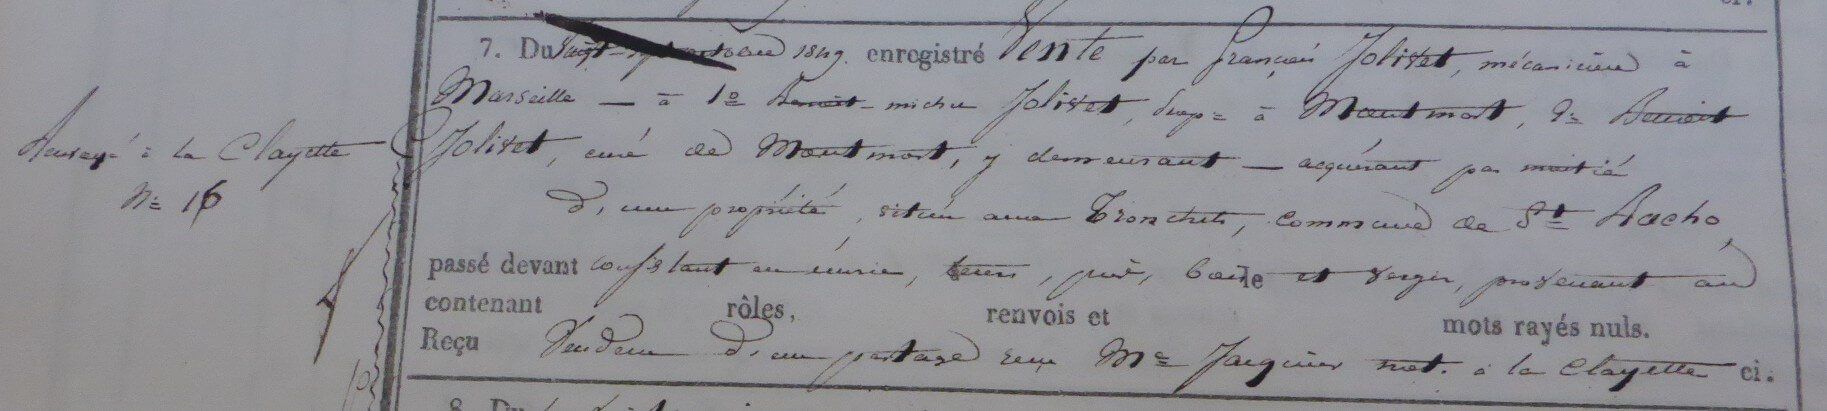 7. Du vingt-sept octobre 1849. enregistré Vente par François Jolivet, mécanicien à
Marseille — à 1º Benoit-michel Jolivet, prop= à Montmort, 2= Benoit
Renvoyé à la Clayette
Jolivet, curé de Montmort, y demeurant — acquérant par moitié
N= 16
d'une propriété, située aux Tronchets, commune de St Racho,
passé devant consistant en écurie, terres, pré, bois le et verger, provenant au
contenant rôles, renvois et mots rayés nuls.
Reçu Vendeur d'un partage reçu Me Jacquier not. à la Clayette ci.
8. Du